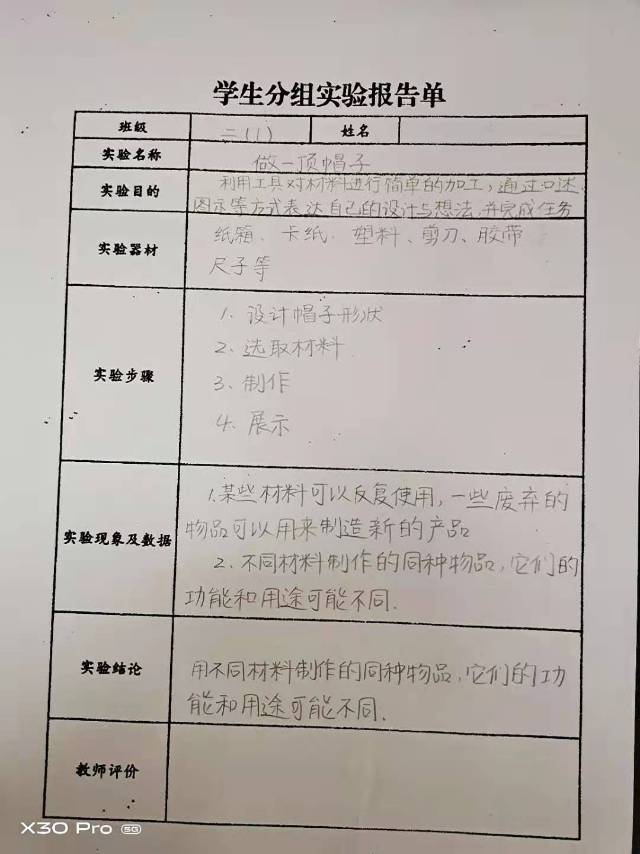 学生分组实验报告单
班级 二(1) 姓名
实验名称 做一顶帽子
实验目的 利用工具对材料进行简单的加工，通过口述、
图示等方式表达自己的设计与想法，并完成任务
实验器材 纸箱、卡纸、塑料、剪刀、胶带
尺子等
实验步骤
1、设计帽子形状
2、选取材料
3、制作
4、展示
实验现象及数据
1.某些材料可以反复使用，一些废弃的
物品可以用来制造新的产品
2、不同材料制作的同种物品，它们的
功能和用途可能不同.
实验结论
用不同材料制作的同种物品，它们的功
能和用途可能不同.
教师评价
X30 Pro 5G